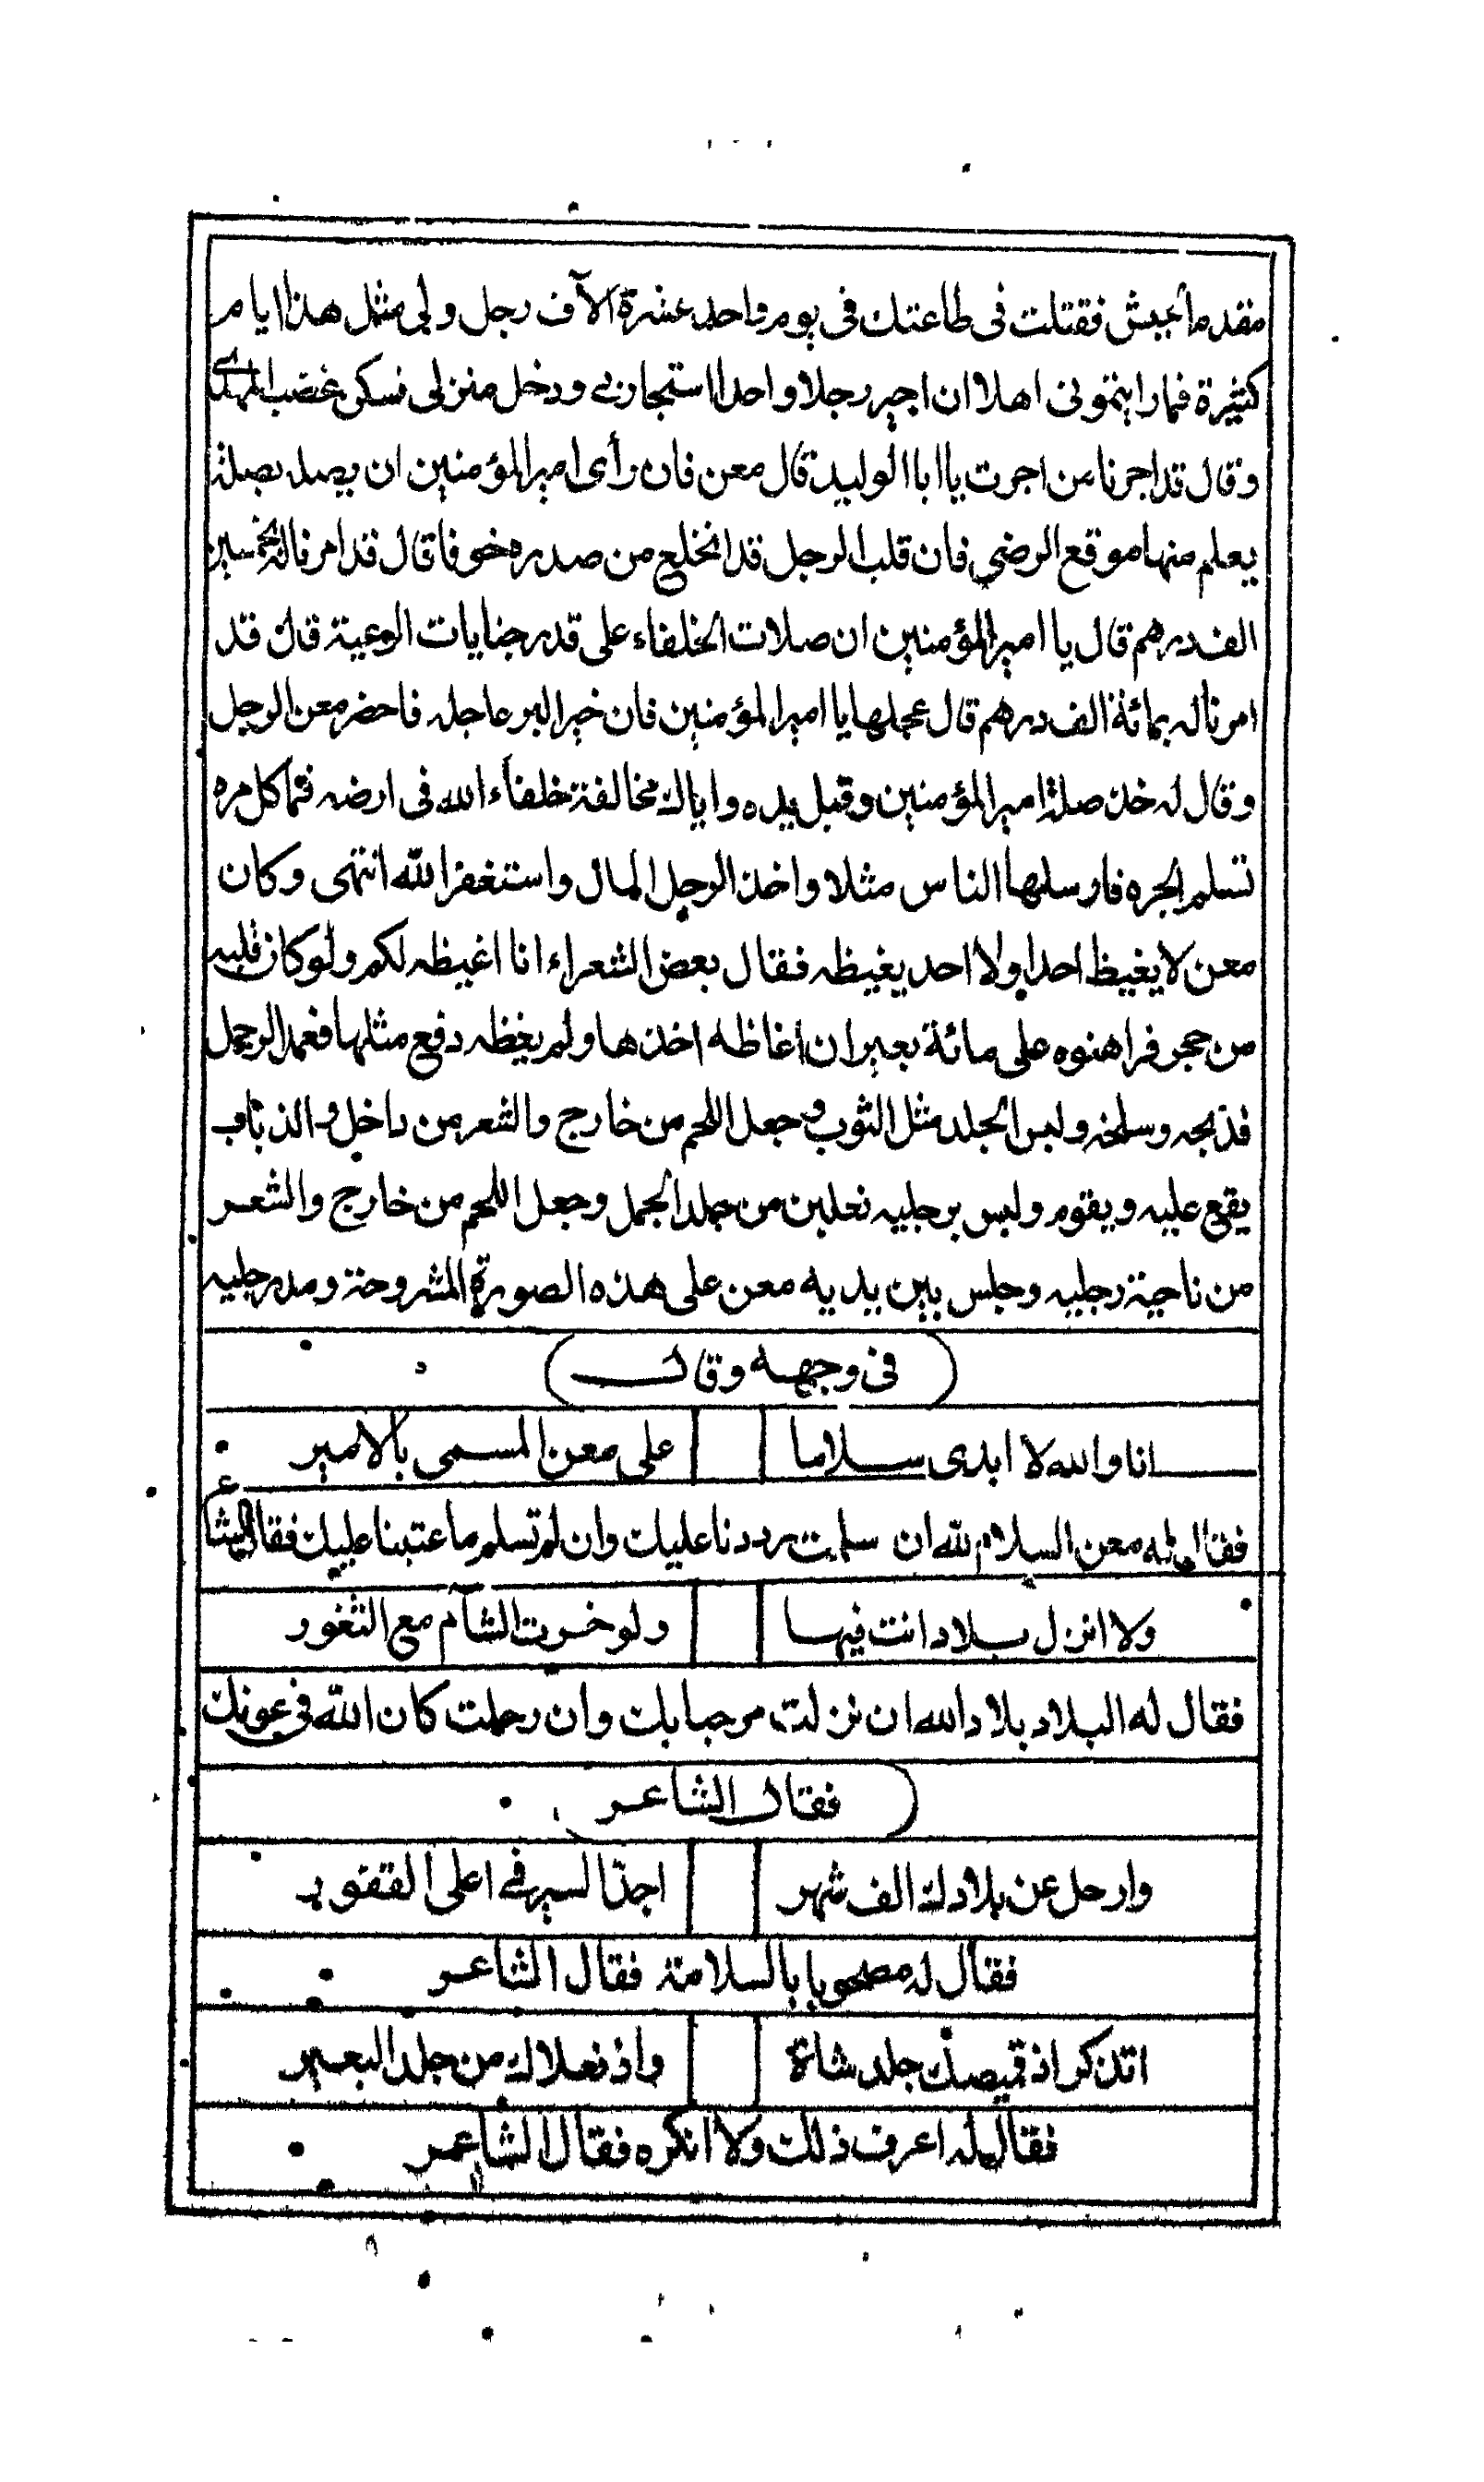 مقدم الجيش فقتلت في طاعتك في يوم واحد عشرة الآف رجل ولي مثل هذا ايام
كثيرة فما رايتموني اهلا ان اجير رجلا واحدا استجار بي ودخل منزلي فسكن غضب المهدي
وقال قد اجرنا من اجرت يا ابا الوليد قال معن فان رأى امير المؤمنين ان يصله بصلة
يعلم منها موقع الرضى فان قلب الرجل قد انخلع من صدره خوفا قال قد امرنا له بخمسين
الف درهم قال يا امير المؤمنين ان صلات الخلفاء على قدر جنايات الرعية قال قد
امرنا له بمائة الف درهم قال عجلها يا امير المؤمنين فان خير البر عاجله فاحضر معن الرجل
وقال له خذ صلة امير المؤمنين وقبل يده واياك مخالفة خلفاء الله في ارضه فما كل مره
تسلم الجره فارسلها الناس مثلا واخذ الرجل المال واستغفر الله انتهى وكان
معن لا يغيظ احدا ولا احد يغيظه فقال بعض الشعراء انا اغيظه لكم ولو كان قلبه
من حجر فراهنوه على مائة بعير ان اغاظه اخذها ولم يغظه دفع مثلها فعمد الرجل
فذبحه وسلخه ولبس الجلد مثل الثوب وجعل اللحم من خارج والشعر من داخل والذباب
يقع عليه ويقوم ولبس برجليه نعلين من جلد الجمل وجعل اللحم من خارج والشعر
من ناحية رجليه وجلس بين يديه معن على هذه الصورة المشروحة ومد رجليه
في وجهه وقال
انا والله لا ابدي سلاما على معن المسمى بالامير
فقال له معن السلام لله ان سلمت رددنا عليك وان لم تسلم ما عتبنا عليك فقال الشاعر
ولا انزل بلادا انت فيها ولو خرت الشآم مع الثغور
فقال له البلاد بلاد الله ان نزلت مرحبا بك وان رحلت كان الله في عونك
فقال الشاعر
وارحل عن بلادك الف شهر اجدّ السير في اعلى القفور
فقال له مصحوبا بالسلامة فقال الشاعر
اتذكر اذ قميصك جلد شاة واذ نعلاك من جلد البعير
فقال له اعرف ذلك ولا انكره فقال الشاعر